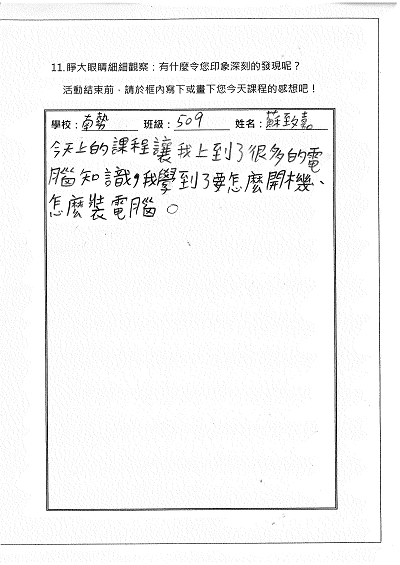 11.睜大眼睛細細觀察：有什麼令您印象深刻的發現呢？
活動結束前、請於框內寫下或畫下您今天課程的感想吧！
學校：南勢 班級：509 姓名：蘇致嘉
今天上的課程讓我上到了很多的電
腦知識，我學到了要怎麼開機、
怎麼裝電腦。